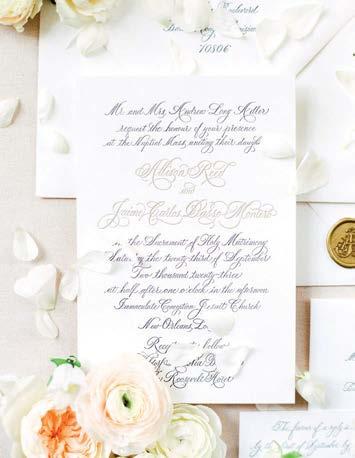 Boulevard
70806
Mr. and Mrs. Andrew Long Miller
request the honour of your presence
at the Nuptial Mass, uniting their daugh
Allison Reed
and
Jaime Carlos
in the Sacrament of Holy Matrimony
the twenty-third of September
Two thousand twenty-three
at half after one o'clock in the afternoon
Immaculate Conception Jesuit Church
New Orleans, Lo
Rece follow
Roosevelt Hotel
The favour of a reply is
September